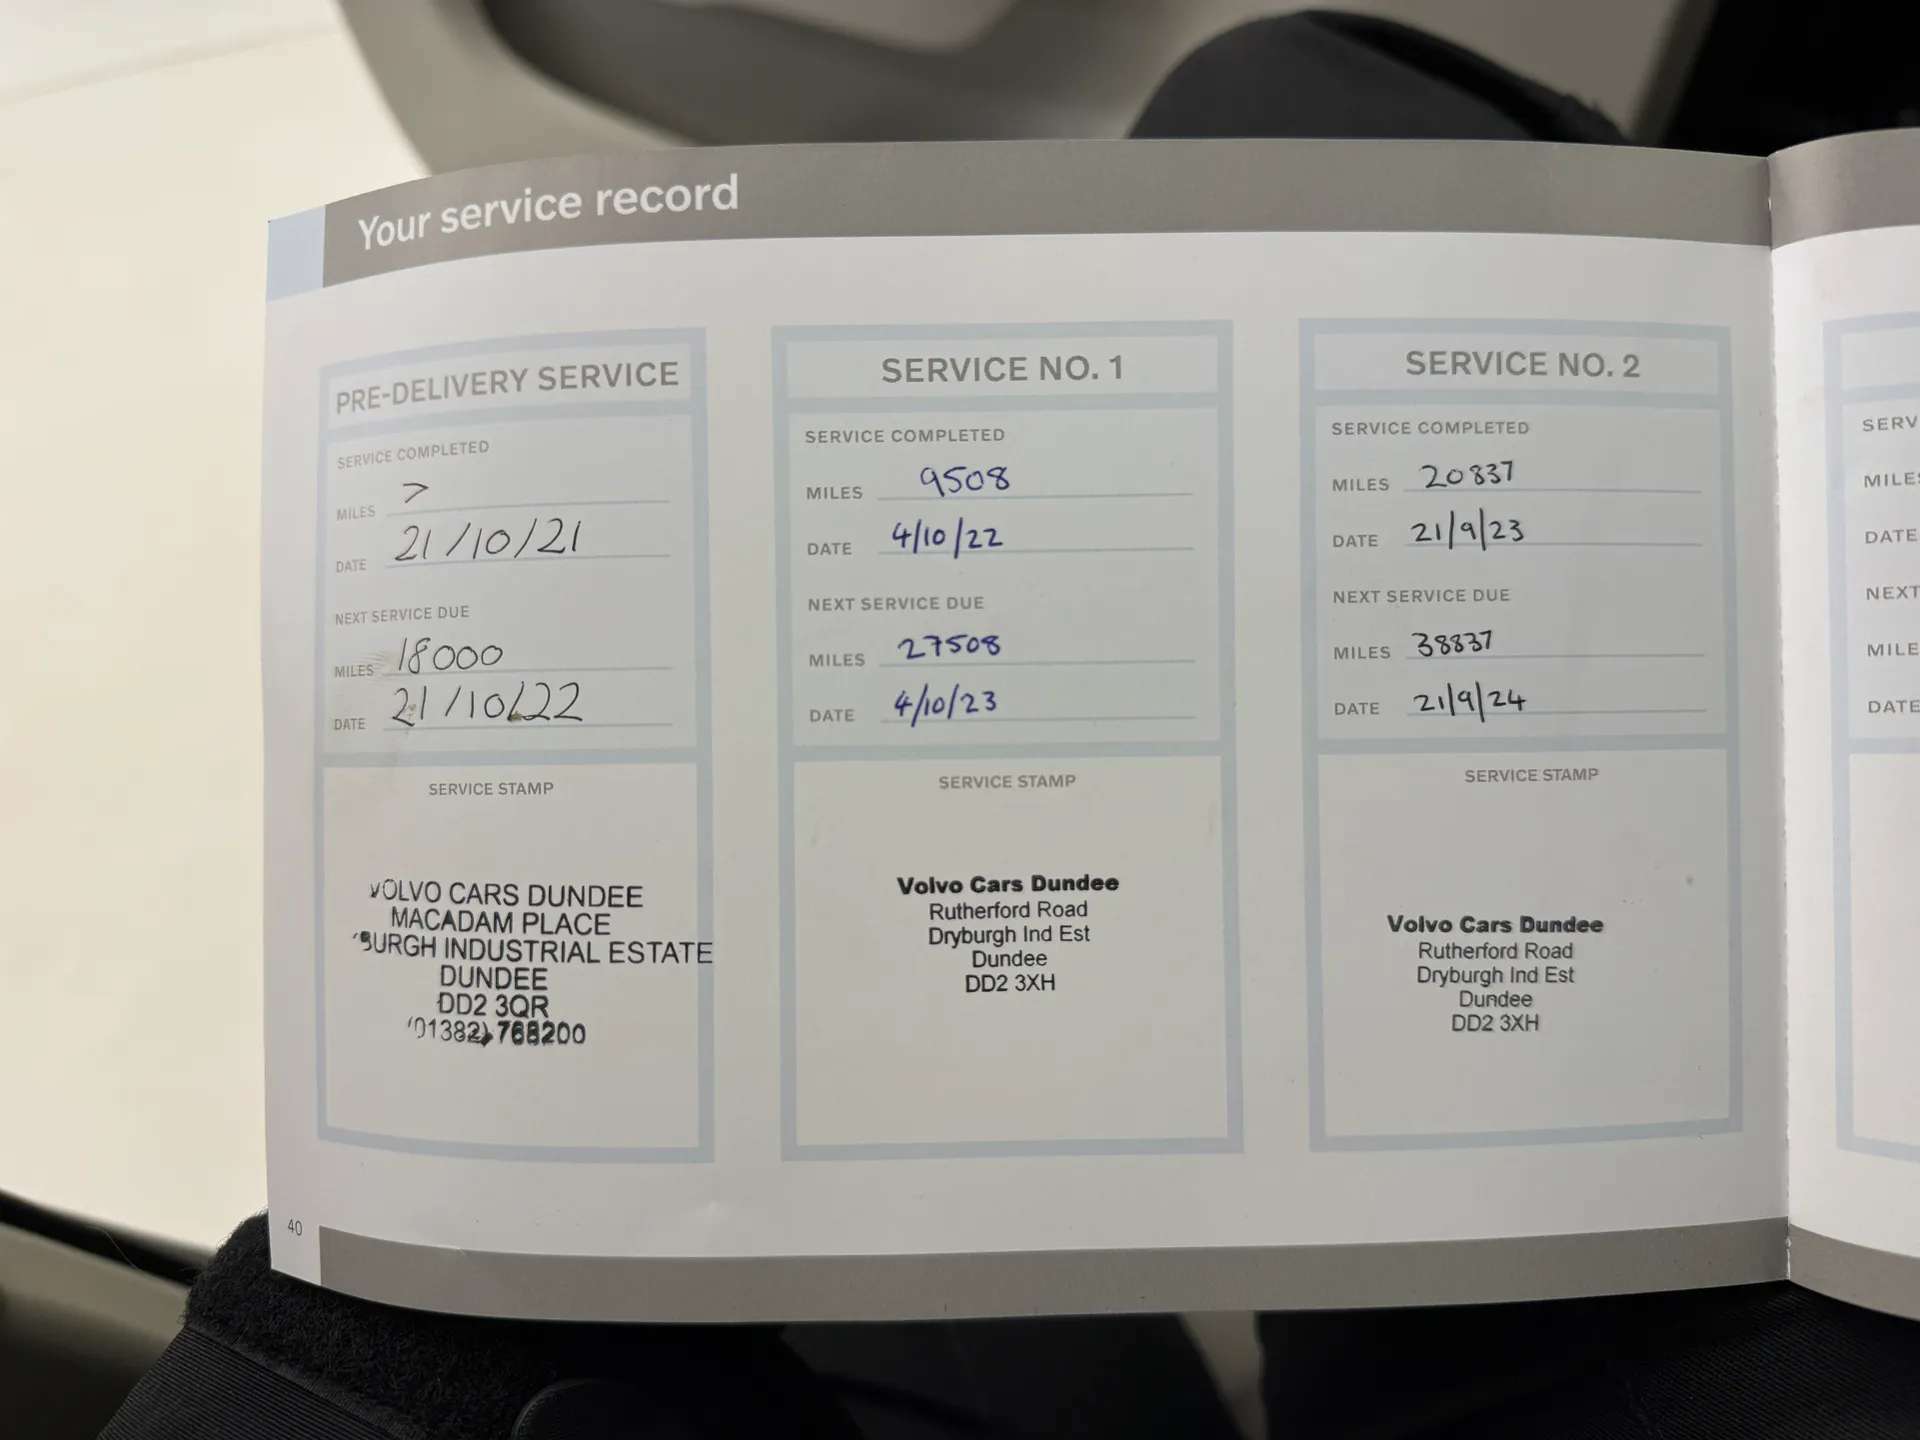 Your service record
PRE-DELIVERY SERVICE
SERVICE COMPLETED
MILES 7
DATE 21/10/21
NEXT SERVICE DUE
MILES 18000
DATE 21/10/22
SERVICE STAMP
VOLVO CARS DUNDEE
MACADAM PLACE
BURGH INDUSTRIAL ESTATE
DUNDEE
DD2 3QR
(01382) 768200
SERVICE NO. 1
SERVICE COMPLETED
MILES 9508
DATE 4/10/22
NEXT SERVICE DUE
MILES 27508
DATE 4/10/23
SERVICE STAMP
Volvo Cars Dundee
Rutherford Road
Dryburgh Ind Est
Dundee
DD2 3XH
SERVICE NO. 2
SERVICE COMPLETED
MILES 20837
DATE 21/9/23
NEXT SERVICE DUE
MILES 38837
DATE 21/9/24
SERVICE STAMP
Volvo Cars Dundee
Rutherford Road
Dryburgh Ind Est
Dundee
DD2 3XH
SERV
MILES
DATE
NEXT
MILE
DATE
40